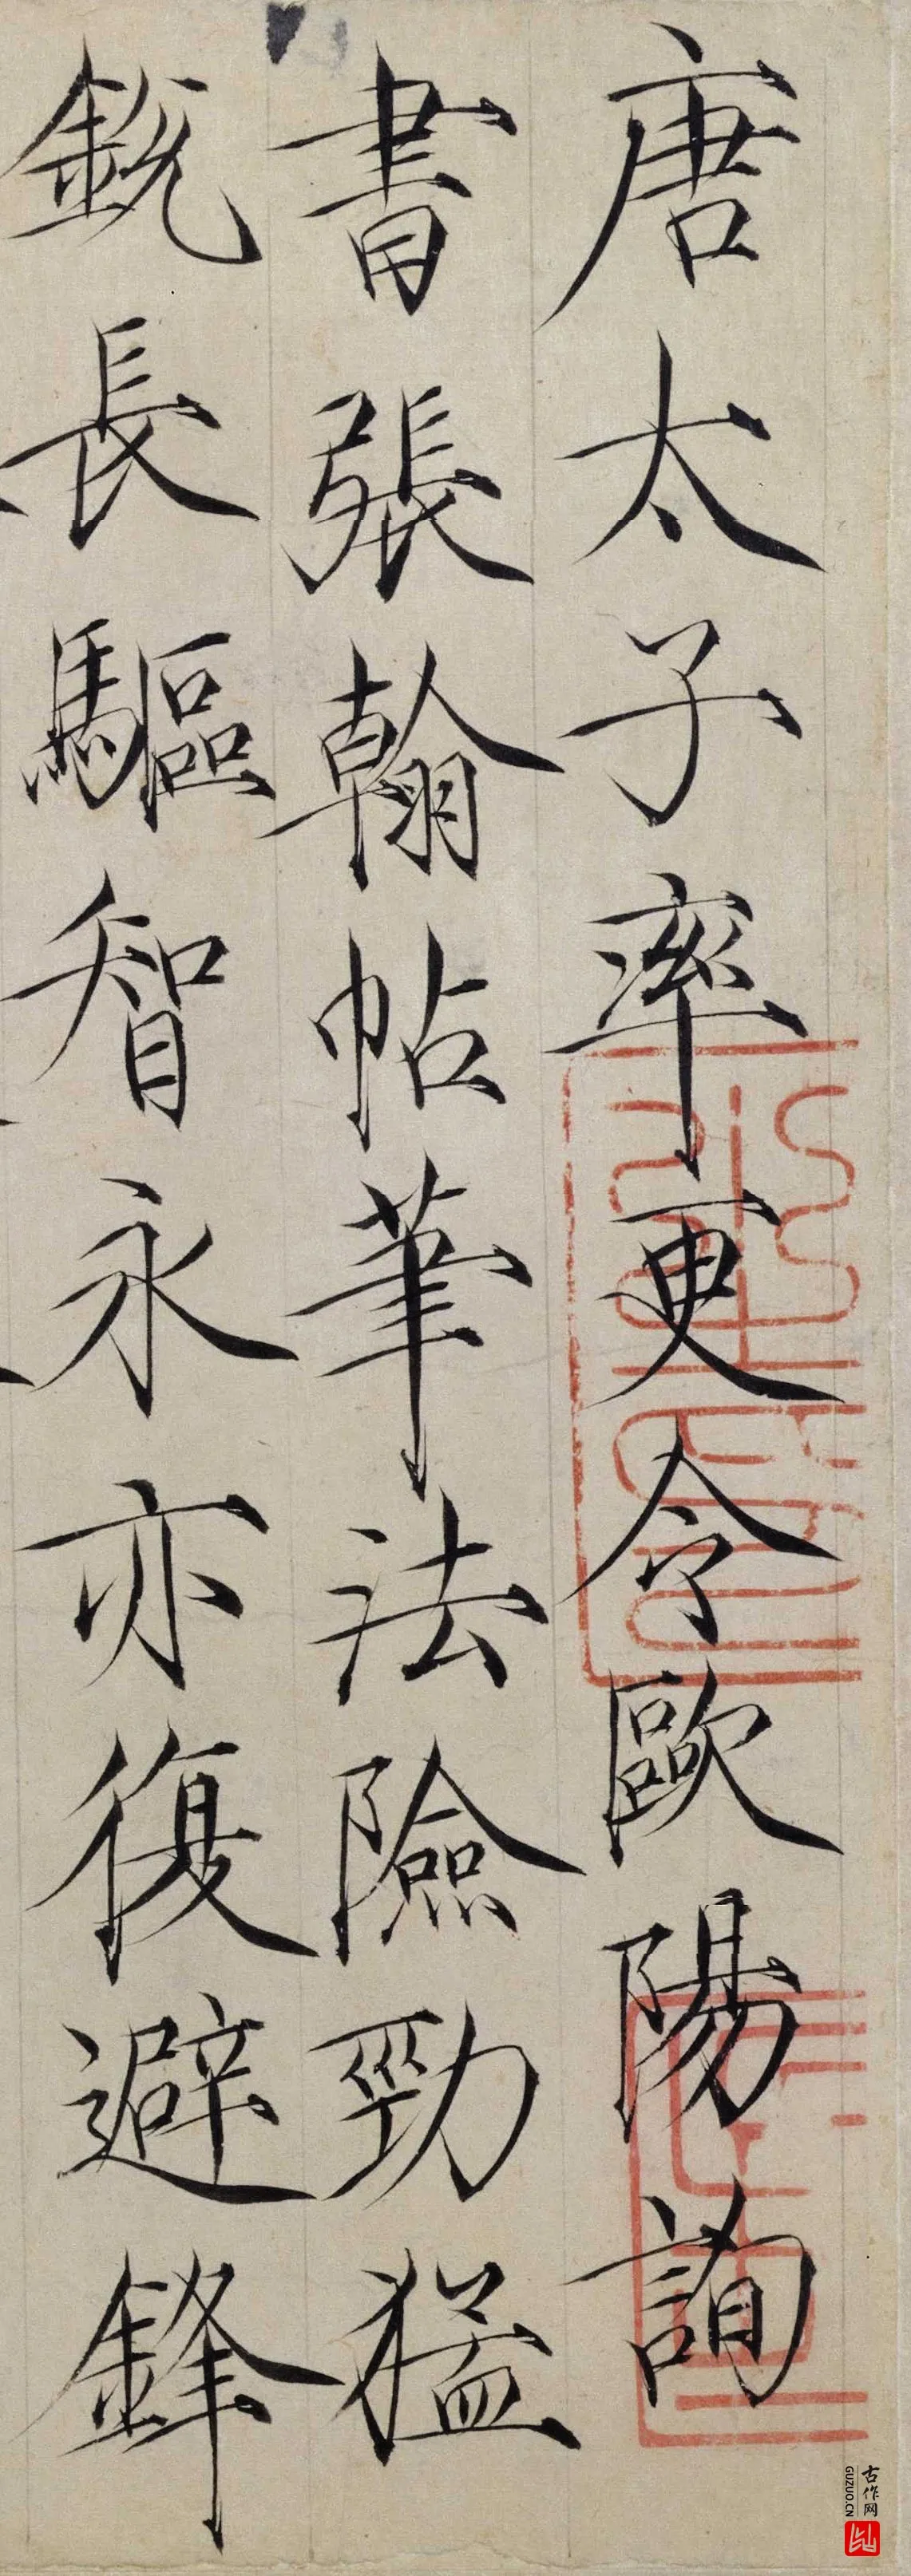 唐太子率更令歐陽詢
書張翰帖筆法險勁猛
銳長驅智永亦復避鋒
古作网
GUZUO.CN